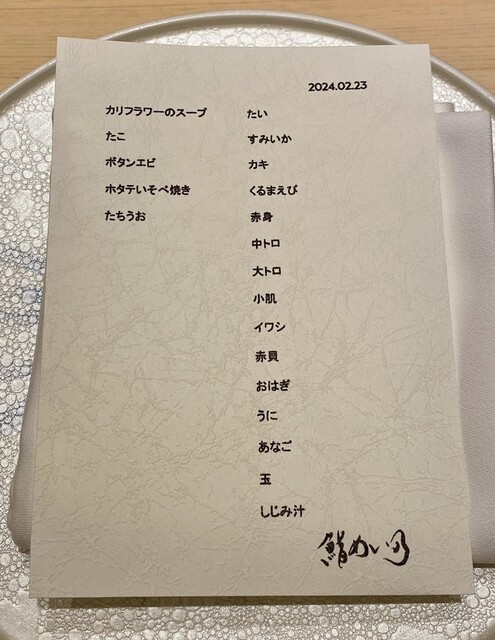 2024.02.23
カリフラワーのスープ
たこ
ボタンエビ
ホタテいそべ焼き
たちうお
たい
すみいか
カキ
くるまえび
赤身
中トロ
大トロ
小肌
イワシ
赤貝
おはぎ
うに
あなご
玉
しじみ汁